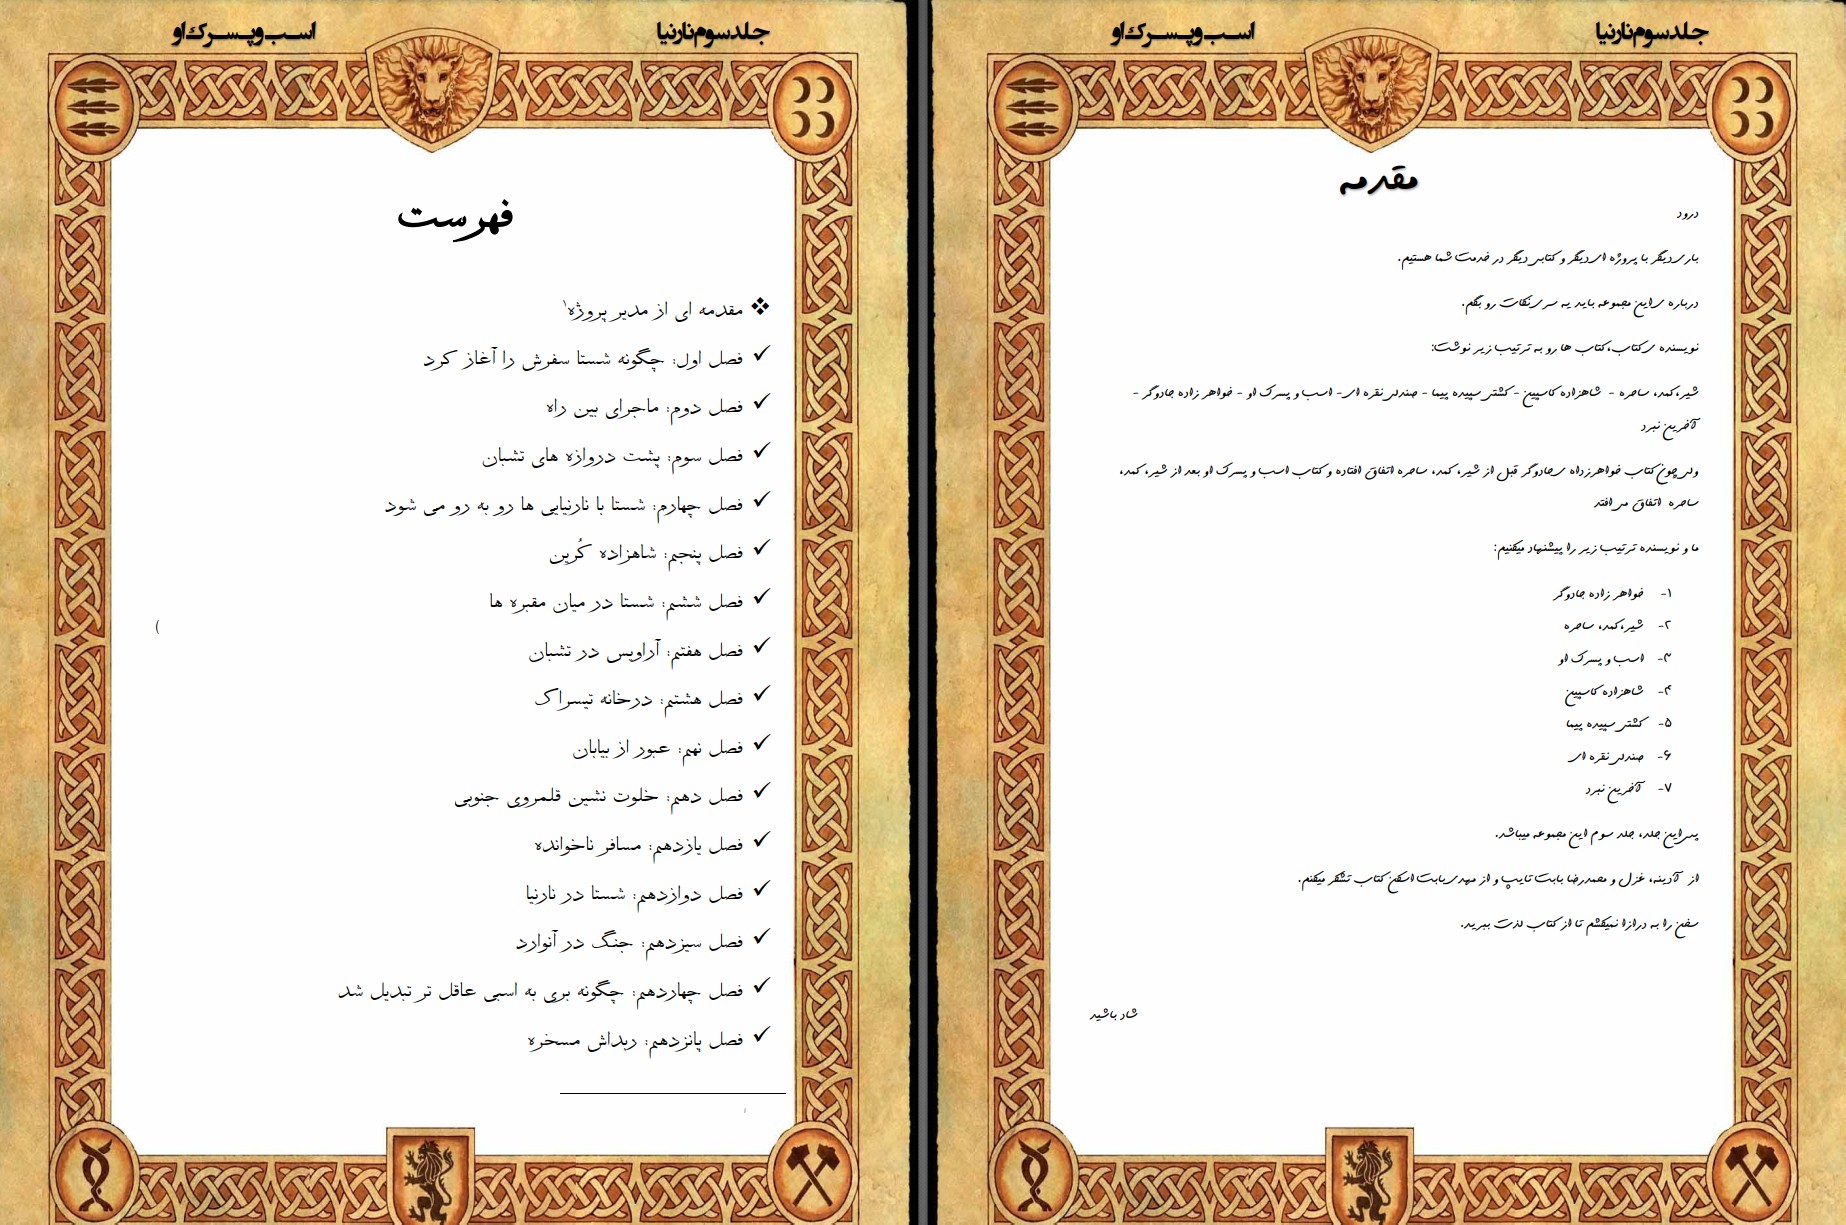 جلد سوم نارنیا
اسب و پسرک او
مقدمه
درود
باری دیگر با پروژه ای دیگر و کتابی دیگر در خدمت شما هستیم.
درباره ی این مجموعه باید یه سری نکات رو بگم.
نویسنده ی کتاب،کتاب ها رو به ترتیب زیر نوشت:
شیر،کمد، ساحره - شاهزاده کاسپین - کشتی سپیده پیما - صندلی نقره ای- اسب و پسرک او - خواهر زاده جادوگر -
آخرین نبرد
ولی چون کتاب خواهرزداه ی جادوگر قبل از شیر، کمد، ساحره اتفاق افتاده و کتاب اسب و پسرک او بعد از شیر، کمد،
ساحره اتفاق می افتد
ما و نویسنده ترتیب زیر را پیشنهاد میکنیم:
۱- خواهر زاده جادوگر
۲- شیر،کمد، ساحره
۳- اسب و پسرک او
۴- شاهزاده کاسپین
۵- کشتی سپیده پیما
۶- صندلی نقره ای
۷- آخرین نبرد
پس این جلد، جلد سوم این مجموعه میباشد.
از آدینه، غزل و محمدرضا بابت تایپ و از مهدی بابت اسکن کتاب تشکر میکنم.
سخن را به درازا نمیکشم تا از کتاب لذت ببرید.
شاد باشید
جلد سوم نارنیا
اسب و پسرک او
فهرست
❖ مقدمه ای از مدیر پروژه۱
✓ فصل اول: چگونه شستا سفرش را آغاز کرد
✓ فصل دوم: ماجرای بین راه
✓ فصل سوم: پشت دروازه های تشبان
✓ فصل چهارم: شستا با نارنیایی ها رو به رو می شود
✓ فصل پنجم: شاهزاده کُرین
✓ فصل ششم: شستا در میان مقبره ها
(
✓ فصل هفتم: آراویس در تشبان
✓ فصل هشتم: درخانه تیسراک
✓ فصل نهم: عبور از بیابان
✓ فصل دهم: خلوت نشین قلمروی جنوبی
✓ فصل یازدهم: مسافر ناخوانده
✓ فصل دوازدهم: شستا در نارنیا
✓ فصل سیزدهم: جنگ در آنوارد
✓ فصل چهاردهم: چگونه بری به اسبی عاقل تر تبدیل شد
✓ فصل پانزدهم: ربداش مسخره